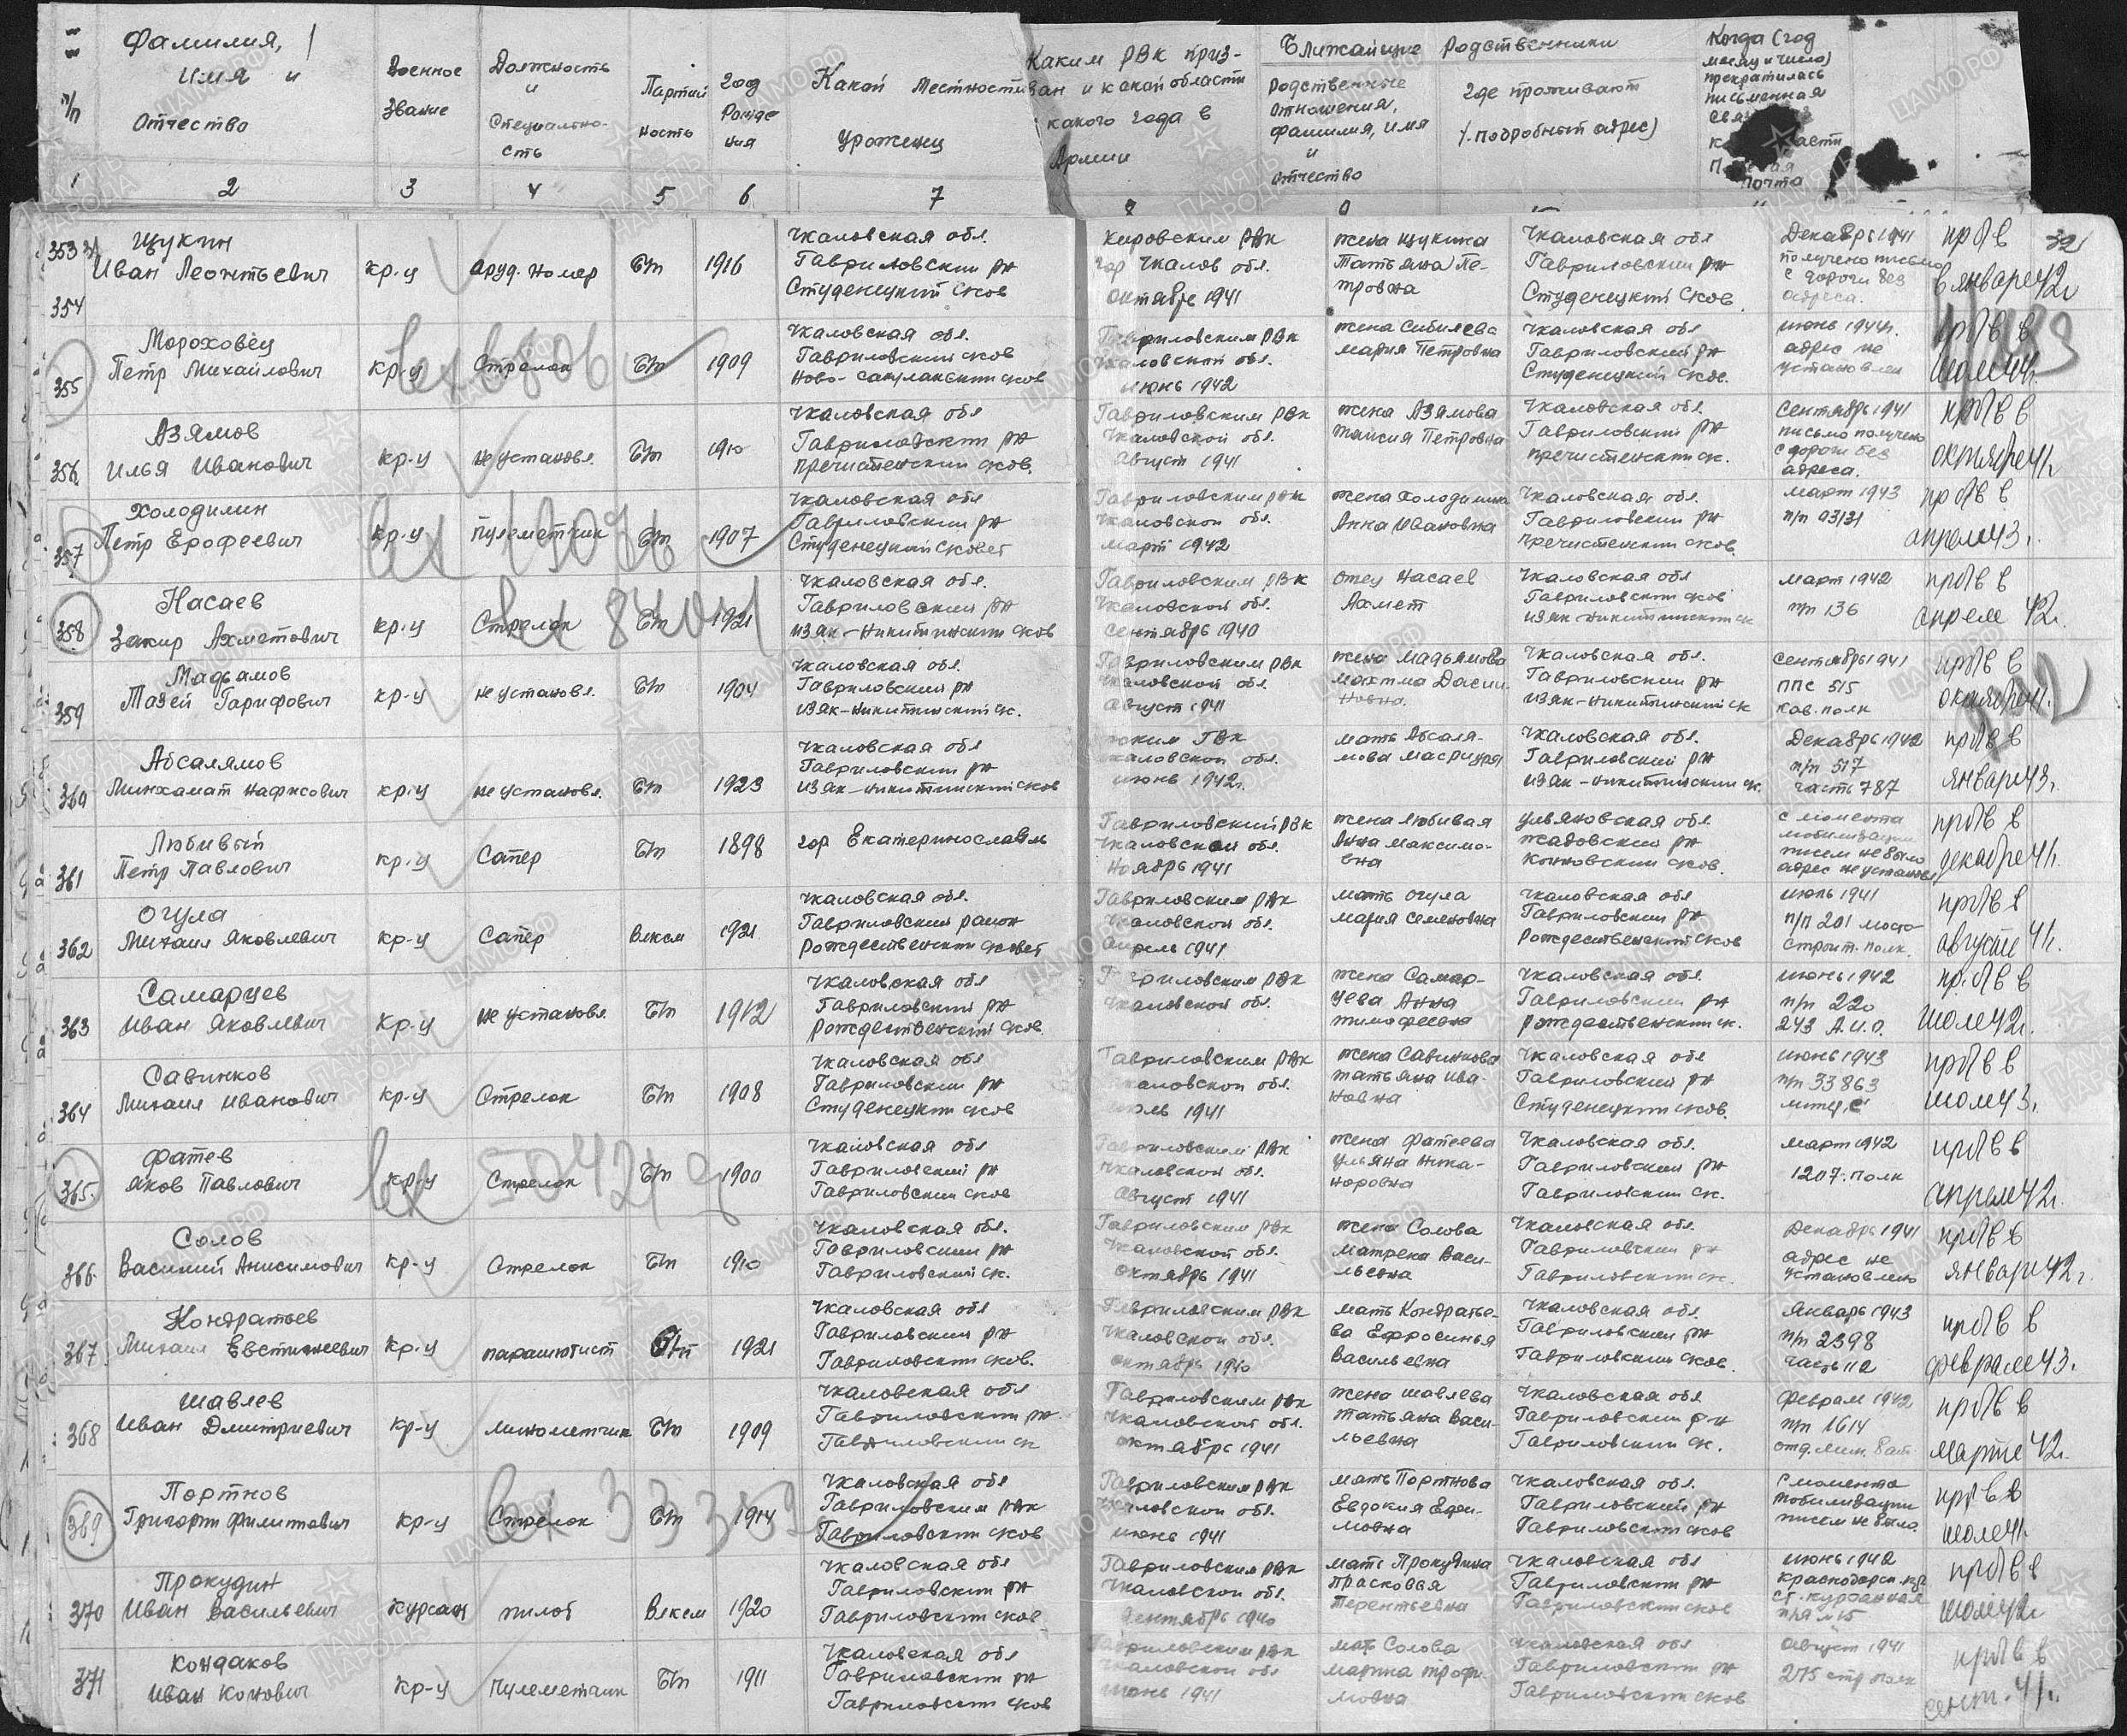 Фамилия,
имя и
Отчество
п/п
Военное
звание
Должность
и
Специально-
сть
Партий
ность
год
Рожде
ния
Какой местности
уроженец
Каким РВК приз-
ван и какой области
какого года в
Армии
Ближайшие Родственники
Родственные
отношения,
фамилия, имя
и
отчество
где проживают
(подробный адрес)
Когда (год
месяц и число)
прекратилась
письменная
почта
1 2 3 4 5 6 7 8 9
353
Щукин
Иван Леонтьевич
кр-ц
оруд. номер
б/п
1916
Чкаловская обл.
Гавриловский рн
Студенецкий сков
Кировским РВК
гор Чкалов обл.
октябре 1941
жена Щукина
Татьяна Пе-
тровна
Чкаловская обл
Гавриловский рн
Студенецкий сков
Декабрь 1941
получено письмо
с дороги без
адреса.
пр б/в в
январе 42г
32
354
355
Мороховец
Петр Михайлович
кр-ц
Стрелок
б/п
1909
Чкаловская обл.
Гавриловский сков
Ново-сакулакский сков
Гавриловским РВК
Чкаловской обл.
июнь 1942
жена Сибилева
Мария Петровна
Чкаловская обл
Гавриловский рн
Студенецкий сков.
июнь 1944г.
адрес не
установлен
пр б/в в
июле 44г.
356
Азямов
Илья Иванович
кр-ц
не установл.
б/п
1910
Чкаловская обл
Гавриловский рн
Пречистенский сков.
Гавриловским РВК
Чкаловской обл.
август 1941
жена Азямова
Таисия Петровна
Чкаловская обл
Гавриловский рн
Пречистенский ск.
Сентябрь 1941
письмо получено
с дороги без
адреса.
пр б/в в
октябре 41г
357
Холодилин
Петр Ерофеевич
кр-ц
пулеметчик
б/п
1907
Чкаловская обл
Гавриловский рн
Студенецкий Сковет
Гавриловским РВК
Чкаловской обл.
март 1942
жена Холодилина
Анна Ивановна
Чкаловская обл.
Гавриловский рн
Пречистенский сков.
март 1943
п/п 93131
пр б/в в
апреле 43г.
358
Насаев
Закир Ахметович
кр-ц
Стрелок
б/п
1921
Чкаловская обл.
Гавриловский рн
Изяк-Никитинский сков
Гавриловским РВК
Чкаловской обл.
Сентябрь 1940
отец Насаев
Ахмет
Чкаловская обл
Гавриловский сков
Изяк-Никитинский ск
март 1942
п/п 136
пр б/в в
апреле 42г.
359
Мадьямов
Тазей Гарифович
кр-ц
не установл.
б/п
1904
Чкаловская обл.
Гавриловский рн
Изяк-Никитинский ск.
Гавриловским РВК
Чкаловской обл.
август 1941
жена Мадьямова
Чкаловская обл.
Гавриловский рн
Изяк-Никитинский ск
Сентябрь 1941
ППС 515
кав. полк
пр б/в в
октябре 41г.
360
Абсалямов
Минхамат Нафисович
кр-ц
не установл.
б/п
1923
Чкаловская обл
Гавриловский рн
Изяк-Никитинский сков
Чкаловской обл.
июнь 1942г.
мать Абсаля-
мова
Чкаловская обл.
Гавриловский рн
Изяк-Никитинский ск.
Декабрь 1942
п/п 517
часть 787
пр б/в в
январе 43г.
361
Любивый
Петр Павлович
кр-ц
Сапер
б/п
1898
гор Екатеринославль
Гавриловский РВК
Чкаловской обл.
Ноябрь 1941
жена Любивая
Анна Максимо-
вна
Ульяновская обл
Жадовский рн
Конновский сков.
с момента
мобилизации
писем не было
адрес не установл
пр б/в в
декабре 41г.
362
Огула
Михаил Яковлевич
кр-ц
Сапер
Влксм
1921
Чкаловская обл.
Гавриловский район
Рождественский сковет
Гавриловским РВК
Чкаловской обл.
апрель 1941
мать Огула
Мария Семеновна
Чкаловская обл
Гавриловский рн
Рождественский сков
июль 1941
п/п 201 мосто
строит. полк.
пр б/в в
августе 41г.
363
Самарцев
Иван Яковлевич
кр-ц
не установл.
б/п
1912
Чкаловская обл
Гавриловский рн
Рождественский сков
Гавриловским РВК
Чкаловской обл.
жена Самар-
цева Анна
Тимофеевна
Чкаловская обл.
Гавриловский рн
Рождественский ск.
июнь 1942
п/п 220
243 А.И.О.
пр. б/в в
июле 42г.
364
Савинков
Михаил Иванович
кр-ц
Стрелок
б/п
1908
Чкаловская обл
Гавриловский рн
Студенецкий сков
Гавриловским РВК
Чкаловской обл.
июль 1941
жена Савинкова
Татьяна Ива-
новна
Чкаловская обл
Гавриловский рн
Студенецкий сков.
июнь 1943
п/п 33863
литер "С"
пр б/в в
июле 43г.
365
Фатев
Яков Павлович
кр-ц
Стрелок
б/п
1900
Чкаловская обл
Гавриловский рн
Гавриловский сков
Гавриловский РВК
Чкаловской обл.
август 1941
жена Фатеева
Ульяна Ника-
норовна
Чкаловская обл.
Гавриловский рн
Гавриловский ск.
март 1942
1207. полк
пр б/в в
апреле 42г.
366
Солов
Василий Анисимович
кр-ц
Стрелок
б/п
1910
Чкаловская обл.
Гавриловский рн
Гавриловский ск.
Гавриловским РВК
Чкаловской обл.
октябрь 1941
жена Солова
Матрена Васи-
льевна
Чкаловская обл.
Гавриловский рн
Гавриловский ск.
Декабрь 1941
адрес не
установлено
пр б/в в
январе 42г.
367
Кондратьев
Михаил Евстигнеевич
кр-ц
парашютист
б/п
1921
Чкаловская обл
Гавриловский рн
Гавриловский сков.
Гавриловским РВК
Чкаловской обл.
октябрь 1940
мать Кондратье-
ва Ефросинья
Васильевна
Чкаловская обл.
Гавриловский рн
Гавриловский сков.
январь 1943
п/п 2398
часть 112
пр б/в в
феврале 43г.
368
Шавлев
Иван Дмитриевич
кр-ц
минометчик
б/п
1909
Чкаловская обл
Гавриловский рн.
Гавриловский ск
Гавриловским РВК
Чкаловской обл.
октябрь 1941
жена Шавлева
Татьяна Васи-
льевна
Чкаловская обл
Гавриловский р-н
Гавриловский ск.
феврале 1942
п/п 1614
отд. мин. бат
пр б/в в
марте 42г.
369
Портнов
Григорий Филиппович
кр-ц
Стрелок
б/п
1914
Чкаловская обл
Гавриловским РВК
Гавриловский сков
Гавриловским РВК
Чкаловской обл.
июнь 1941
мать Портнова
Евдокия Ефи-
мовна
Чкаловская обл.
Гавриловский рн
Гавриловский сков
с момента
мобилизации
писем не было
пр б/в в
июле 41г.
370
Прокудин
Иван Васильевич
курсант
пилот
Влксм
1920
Чкаловская обл
Гавриловский рн
Гавриловский сков.
Гавриловским РВК
Чкаловской обл.
Сентябрь 1940
мать Прокудина
Прасковья
Терентьевна
Чкаловская обл
Гавриловский рн
Гавриловский сков
июнь 1942
Краснодарск. кр
п/я №15
пр б/в в
июле 42г
371
Кондаков
Иван Конович
кр-ц
пулеметчик
б/п
1911
Чкаловская обл
Гавриловский рн
Гавриловский сков
Гавриловским РВК
Чкаловской обл
июнь 1941
мать Солова
Марина Трофи-
мовна
Чкаловская обл
Гавриловский рн
Гавриловский сков
август 1941
275 стр полк
пр б/в в
сент. 41г.